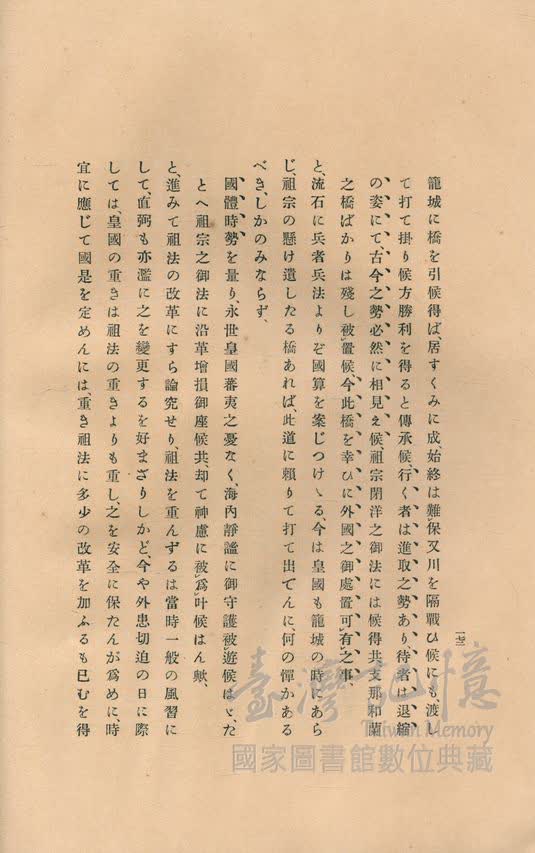 籠城に橋を引候得ば、居すくみに成、始終は難保又川を隔戰ひ候にも、渡し
て打て掛り候方勝利を得ると傳承候、行く者は進取之勢あり待者は退縮
の姿にて、古今之勢必然に相見え候、祖宗閉洋之御法には候得共支那和蘭
之橋ばかりは殘し被置候、今此橋を幸ひに外國之御處置可有之事、
と、流石に兵者兵法よりぞ國算を案じつけゝる、今は皇國も籠城の時にあら
じ、祖宗の懸け遺したる橋あれば、此道に賴りて打て出でんに何の憚かある
べき、しかのみならず、
國體時勢を量り、永世皇國蕃夷之憂なく、海內靜謐に御守護被遊候はゞた
とへ祖宗之御法に沿革增損御座候共、却て神慮に被爲叶候はん歟、
と、進みて祖法の改革にすら論究せり祖法を重んずるは當時一般の風習に
して、直弼も亦濫に之を變更するを好まざりしかど、今や外患切迫の日に際
しては、皇國の重さは祖法の重きよりも重し、之を安全に保たんが爲めに、時
宜に應じて國是を定めんには、重き祖法に多少の改革を加ふるも已むを得
臺灣記憶
Taiwan Memory
國家圖書館數位典藏